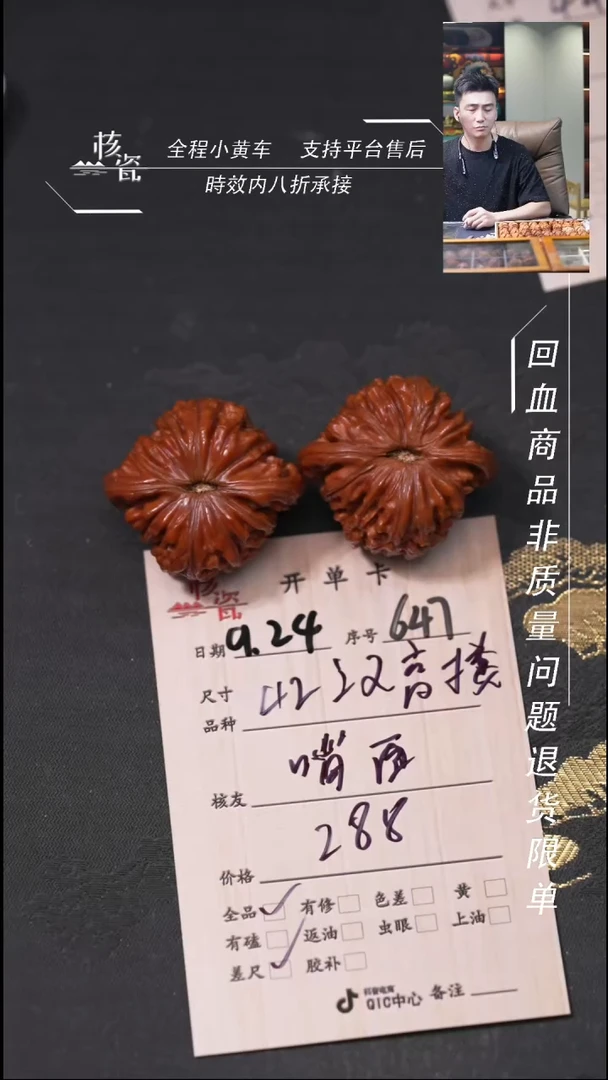 核瓷
全程小黄车 支持平台售后
時效内八折承接
回血商品非质量问题退货限单
核瓷
开单卡
日期 9.24 序号 647
尺寸 42
品种 高楼
核友
价格 288
全品 有修 色差 黄
有磕 返油 虫眼 上油
差尺 胶补
抖音电商
QIC中心 备注